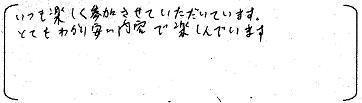 いつも楽しく参加させていただいています。
とてもわかり安い内容で楽しんでいます